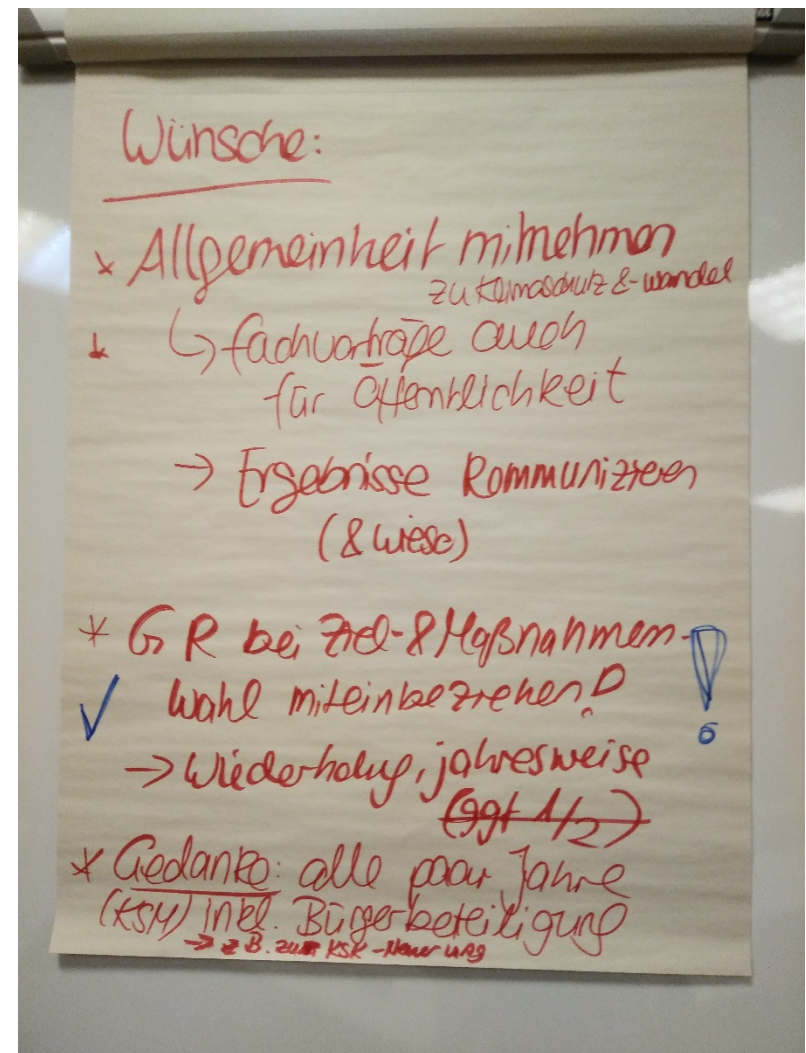 Wünsche:
* Allgemeinheit mitnehmen
zu Klimaschutz & -wandel
↳ Fachvorträge auch
für Öffentlichkeit
→ Ergebnisse kommunizieren
(& wiese)
* GR bei Ziel- & Maßnahmen-
wahl miteinbeziehen!
→ Wiederholung, jahresweise
(ggf 1/2)
* Gedanke: alle paar Jahre
(KSM) inkl. Bürgerbeteiligung
→ z.B. zur KSK-Neuerung